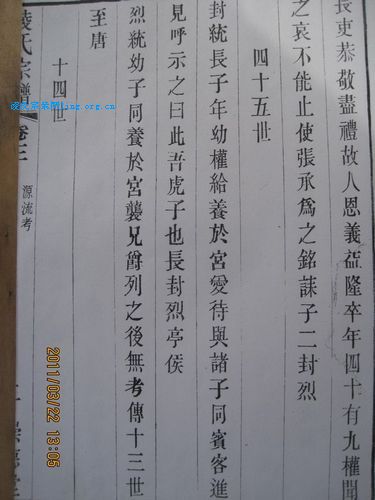 長吏恭敬盡禮故人恩義益隆卒年四十有九權聞
之哀不能止使張承爲之銘誄子二封烈
四十五世
封統長子年幼權給養於宮愛待與諸子同賓客進
見呼示之曰此吾虎子也長封烈亭侯
烈統幼子同養於宮襲兄爵列之後無考傳十三世
至唐
十四世
凌氏宗譜
卷二
源流考
ling.org.cn
2011/03/22 13:05